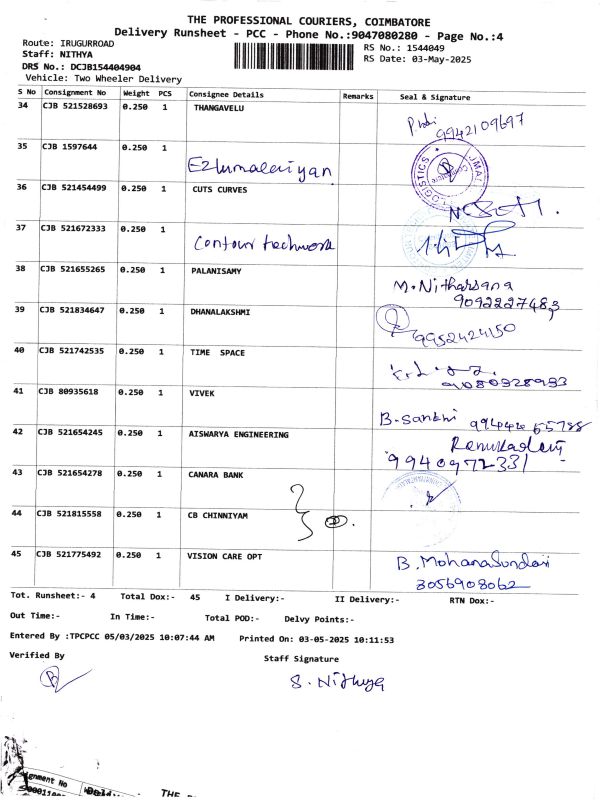 THE PROFESSIONAL COURIERS, COIMBATORE
Delivery Runsheet - PCC - Phone No.:9047080280 - Page No.:4
Route: IRUGURROAD
RS No.: 1544049
Staff: NITHYA
RS Date: 03-May-2025
DRS No.: DCJB154404904
Vehicle: Two Wheeler Delivery
S No Consignment No Weight PCS Consignee Details Remarks Seal & Signature
34 CJB 521528693 0.250 1 THANGAVELU
9942109697
35 CJB 1597644 0.250 1
Ezhumalaiyan
JMAT LOGISTICS
36 CJB 521454499 0.250 1 CUTS CURVES
37 CJB 521672333 0.250 1
Contour techwork
38 CJB 521655265 0.250 1 PALANISAMY
M. Nitharsana
9092227483
39 CJB 521834647 0.250 1 DHANALAKSHMI
9952424150
40 CJB 521742535 0.250 1 TIME SPACE
9080928993
41 CJB 80935618 0.250 1 VIVEK
B. Santhi
42 CJB 521654245 0.250 1 AISWARYA ENGINEERING
Renukadevi
9940972331
43 CJB 521654278 0.250 1 CANARA BANK
44 CJB 521815558 0.250 1 CB CHINNIYAM
45 CJB 521775492 0.250 1 VISION CARE OPT
B. Mohanasundari
3056908062
Tot. Runsheet:- 4 Total Dox:- 45 I Delivery:- II Delivery:- RTN Dox:-
Out Time:- In Time:- Total POD:- Delvy Points:-
Entered By :TPCPCC 05/03/2025 10:07:44 AM Printed On: 03-05-2025 10:11:53
Verified By Staff Signature
S. Nithya